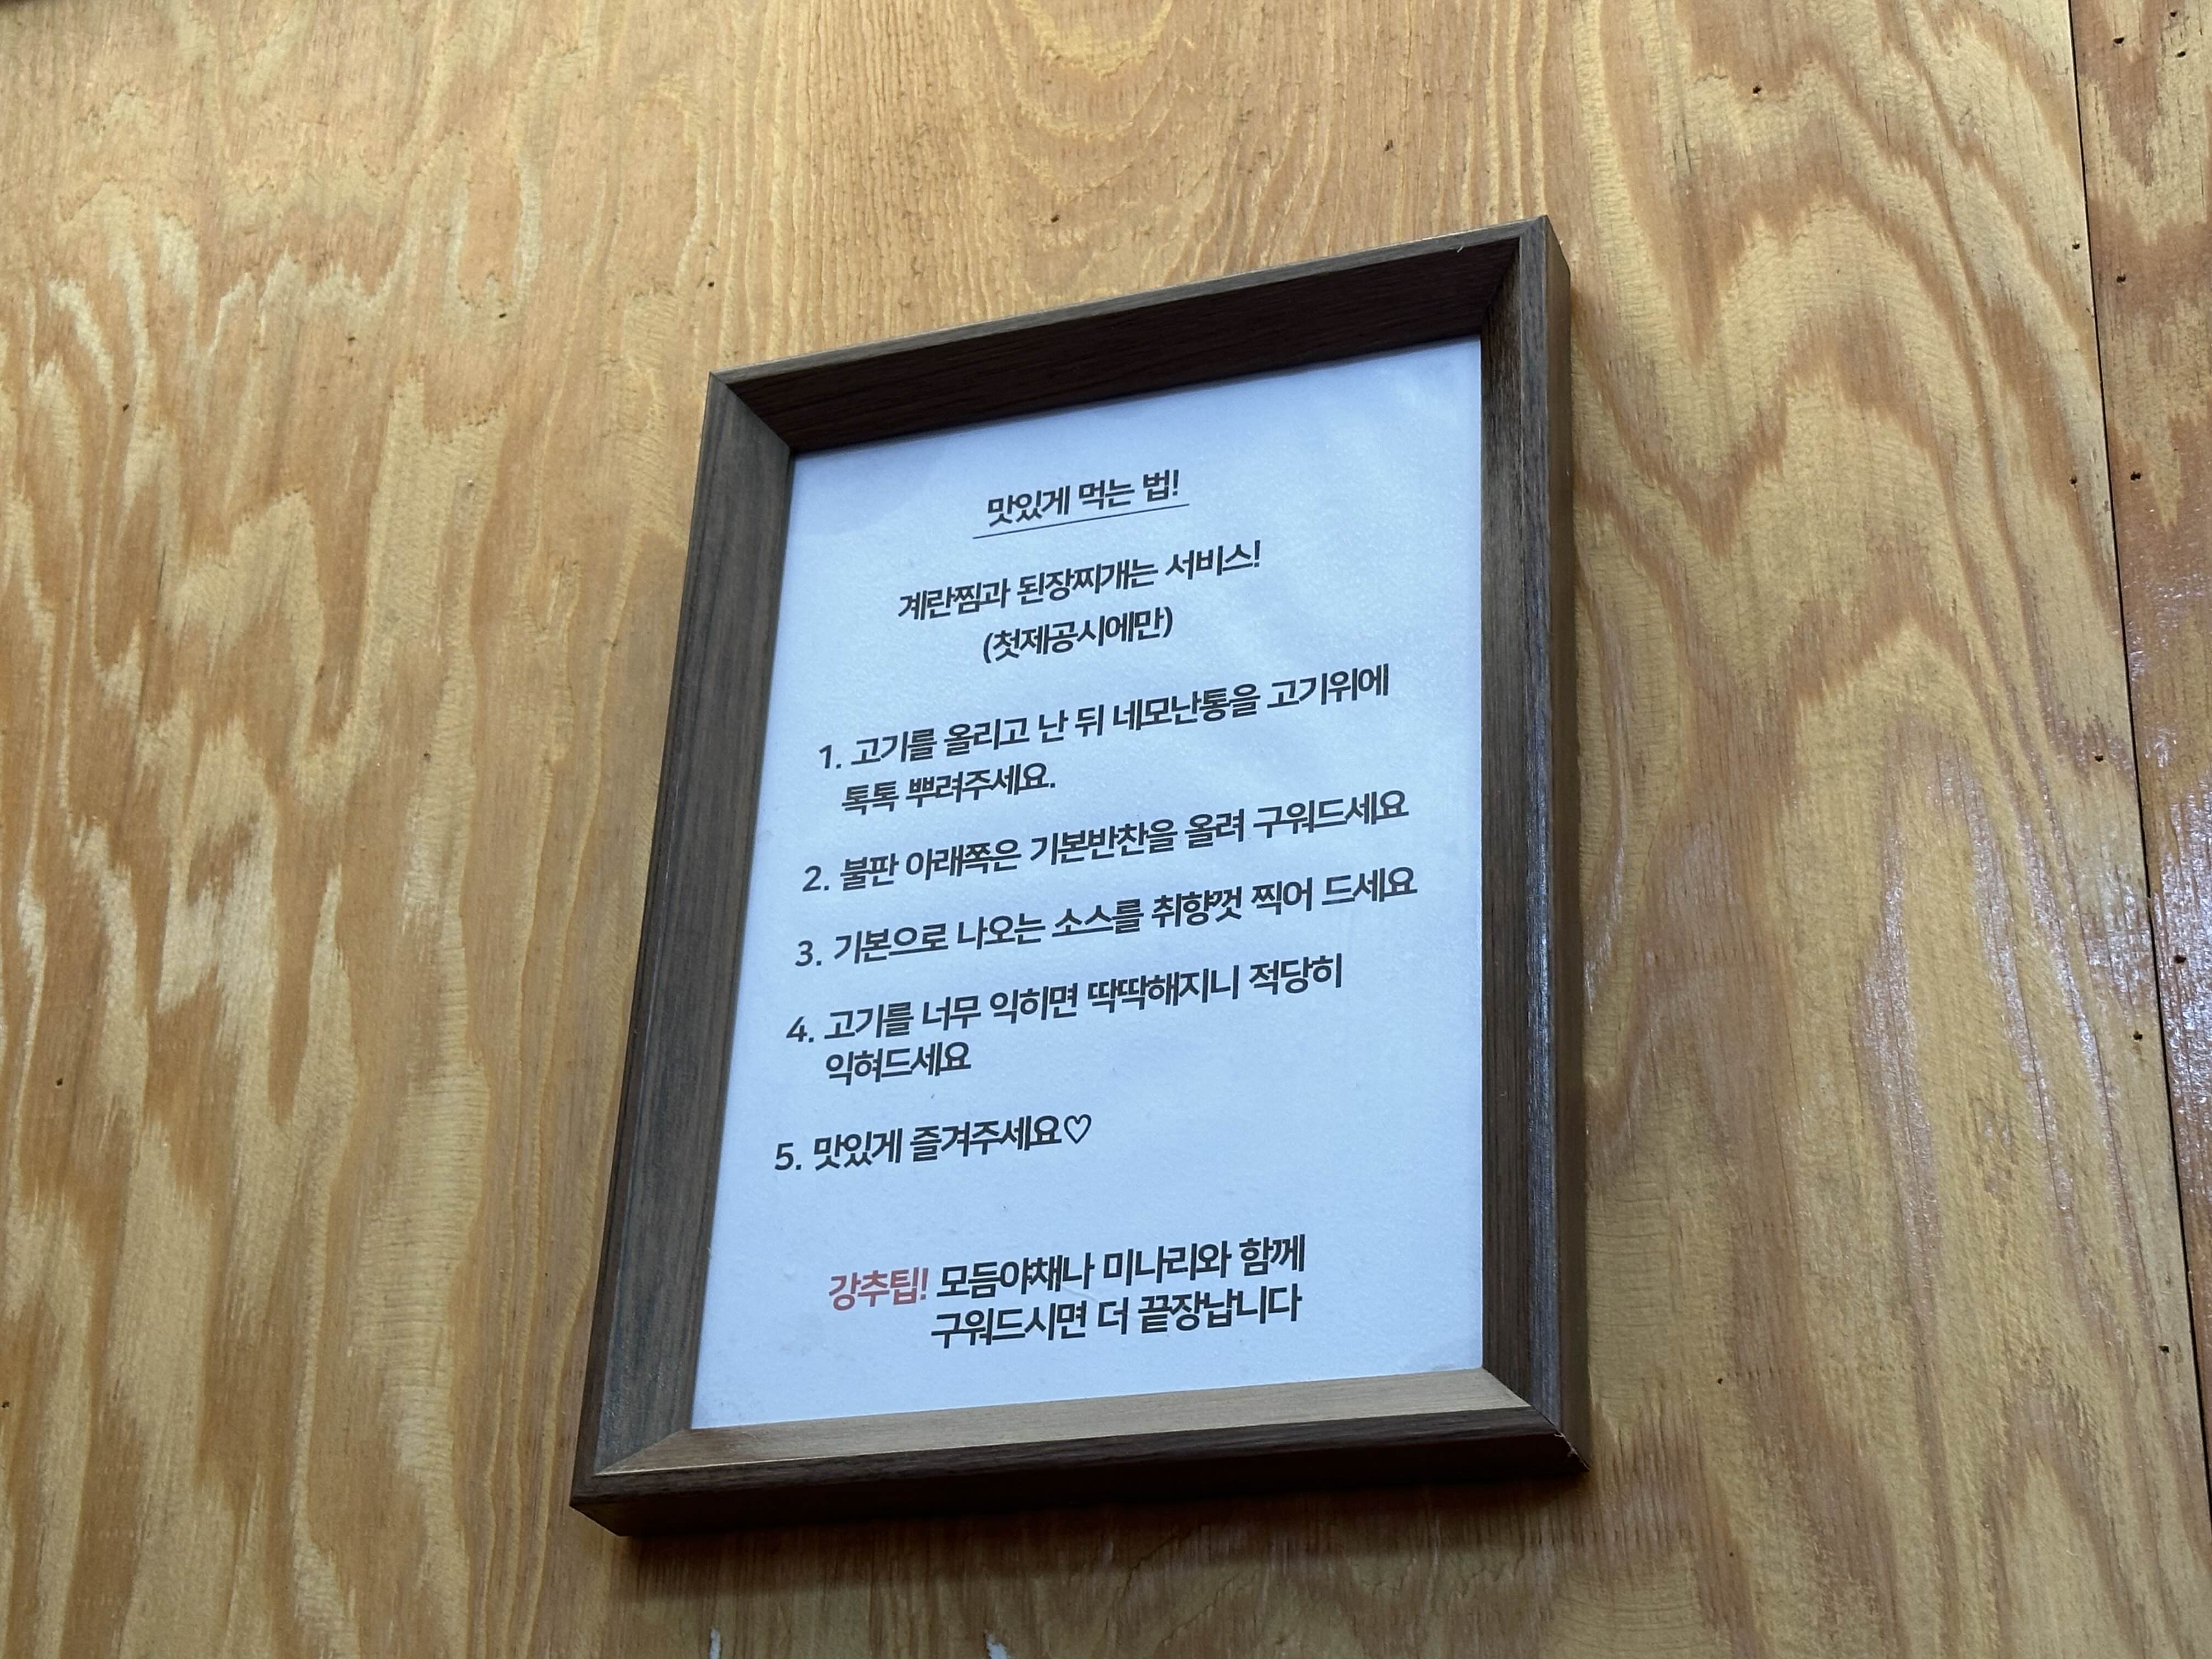 맛있게 먹는 법!
계란찜과 된장찌개는 서비스!
(첫제공시에만)
1. 고기를 올리고 난 뒤 네모난통을 고기위에
톡톡 뿌려주세요.
2. 불판 아래쪽은 기본반찬을 올려 구워드세요
3. 기본으로 나오는 소스를 취향껏 찍어 드세요
4. 고기를 너무 익히면 딱딱해지니 적당히
익혀드세요
5. 맛있게 즐겨주세요♡
강추팁! 모듬야채나 미나리와 함께
구워드시면 더 끝장납니다